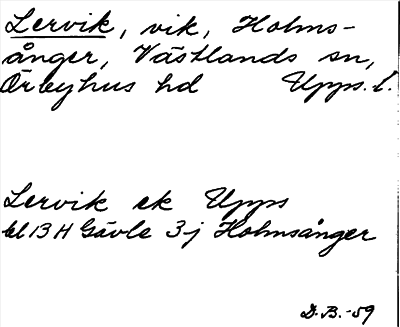 Lervik, vik, Holms-
ånger, Västlands sn,
Örbyhus hd Upps. l.
Lervik ek Upps
bl 13 H Gävle 3j Holmsånger
D.B.-59